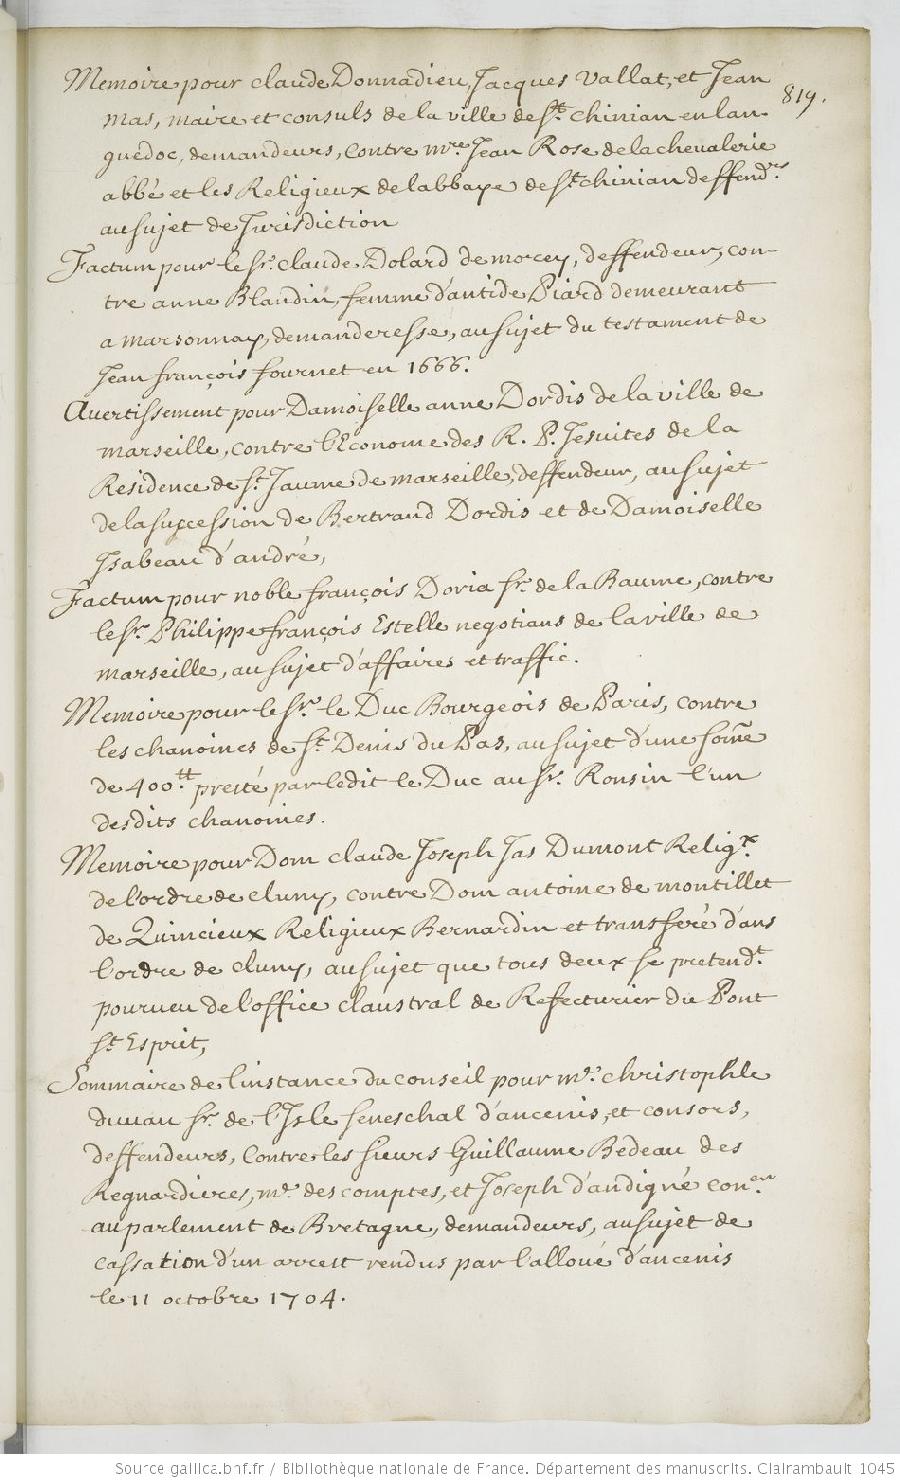 819.
Memoire pour claude Donnadieu, Jacques Vallat, et Jean
mas, maire et consuls de la ville de St. chinian en lan-
guedoc, demandeurs, contre mre. Jean Rose de la chevalerie
abbé et les Religieux de labbaye de St. chinian deffendrs.
au sujet de Jurisdiction
Factum pour le Sr. claude Dolard de mocey, deffendeur, con-
tre anne Blandin, femme d'antide Piard demeurant
a marsonnay, demanderesse, au sujet du testament de
Jean françois fournet en 1666.
Avertissement pour Damoiselle anne Dordis de la ville de
marseille, contre l'Econome des R. P. Jesuites de la
Residence de St. Jaume de marseille, deffendeur, au sujet
de la succession de Bertrand Dordis et de Damoiselle
Isabeau d'andré,
Factum pour noble françois Doria Sr. de la Baume, contre
le Sr. Philippe françois Estelle negotians de la ville de
marseille, au sujet d'affaires et traffic.
Memoire pour le Sr. le Duc Bourgeois de Paris, contre
les chanoines de St. Denis du Pas, au sujet d'une some
de 400tt. presté par ledit le Duc au Sr. Ronsin l'un
desdits chanoines.
Memoire pour Dom claude Joseph Jas Dumont Religx.
de l'ordre de cluny, contre Dom antoine de montillet
de Quincieux Religieux Bernardin et transferé d'ans
l'ordre de cluny, au sujet que tous deux se pretendt.
pourveu de l'office claustral de Refecturier du Pont
St. Esprit,
Sommaire de l'instance du conseil pour mre. christophle
duvau Sr. de l'Isle seneschal d'ancenis, et consors,
deffendeurs, Contre les sieurs Guillaume Bedeau des
Regnardieres, me. des comptes, et Joseph d'andigné conen.
au parlement de Bretagne, demandeurs, au sujet de
cassation d'un arrest rendus par l'alloué d'ancenis
le 11 octobre 1704.
Source gallica.bnf.fr / Bibliothèque nationale de France. Département des manuscrits. Clairambault 1045